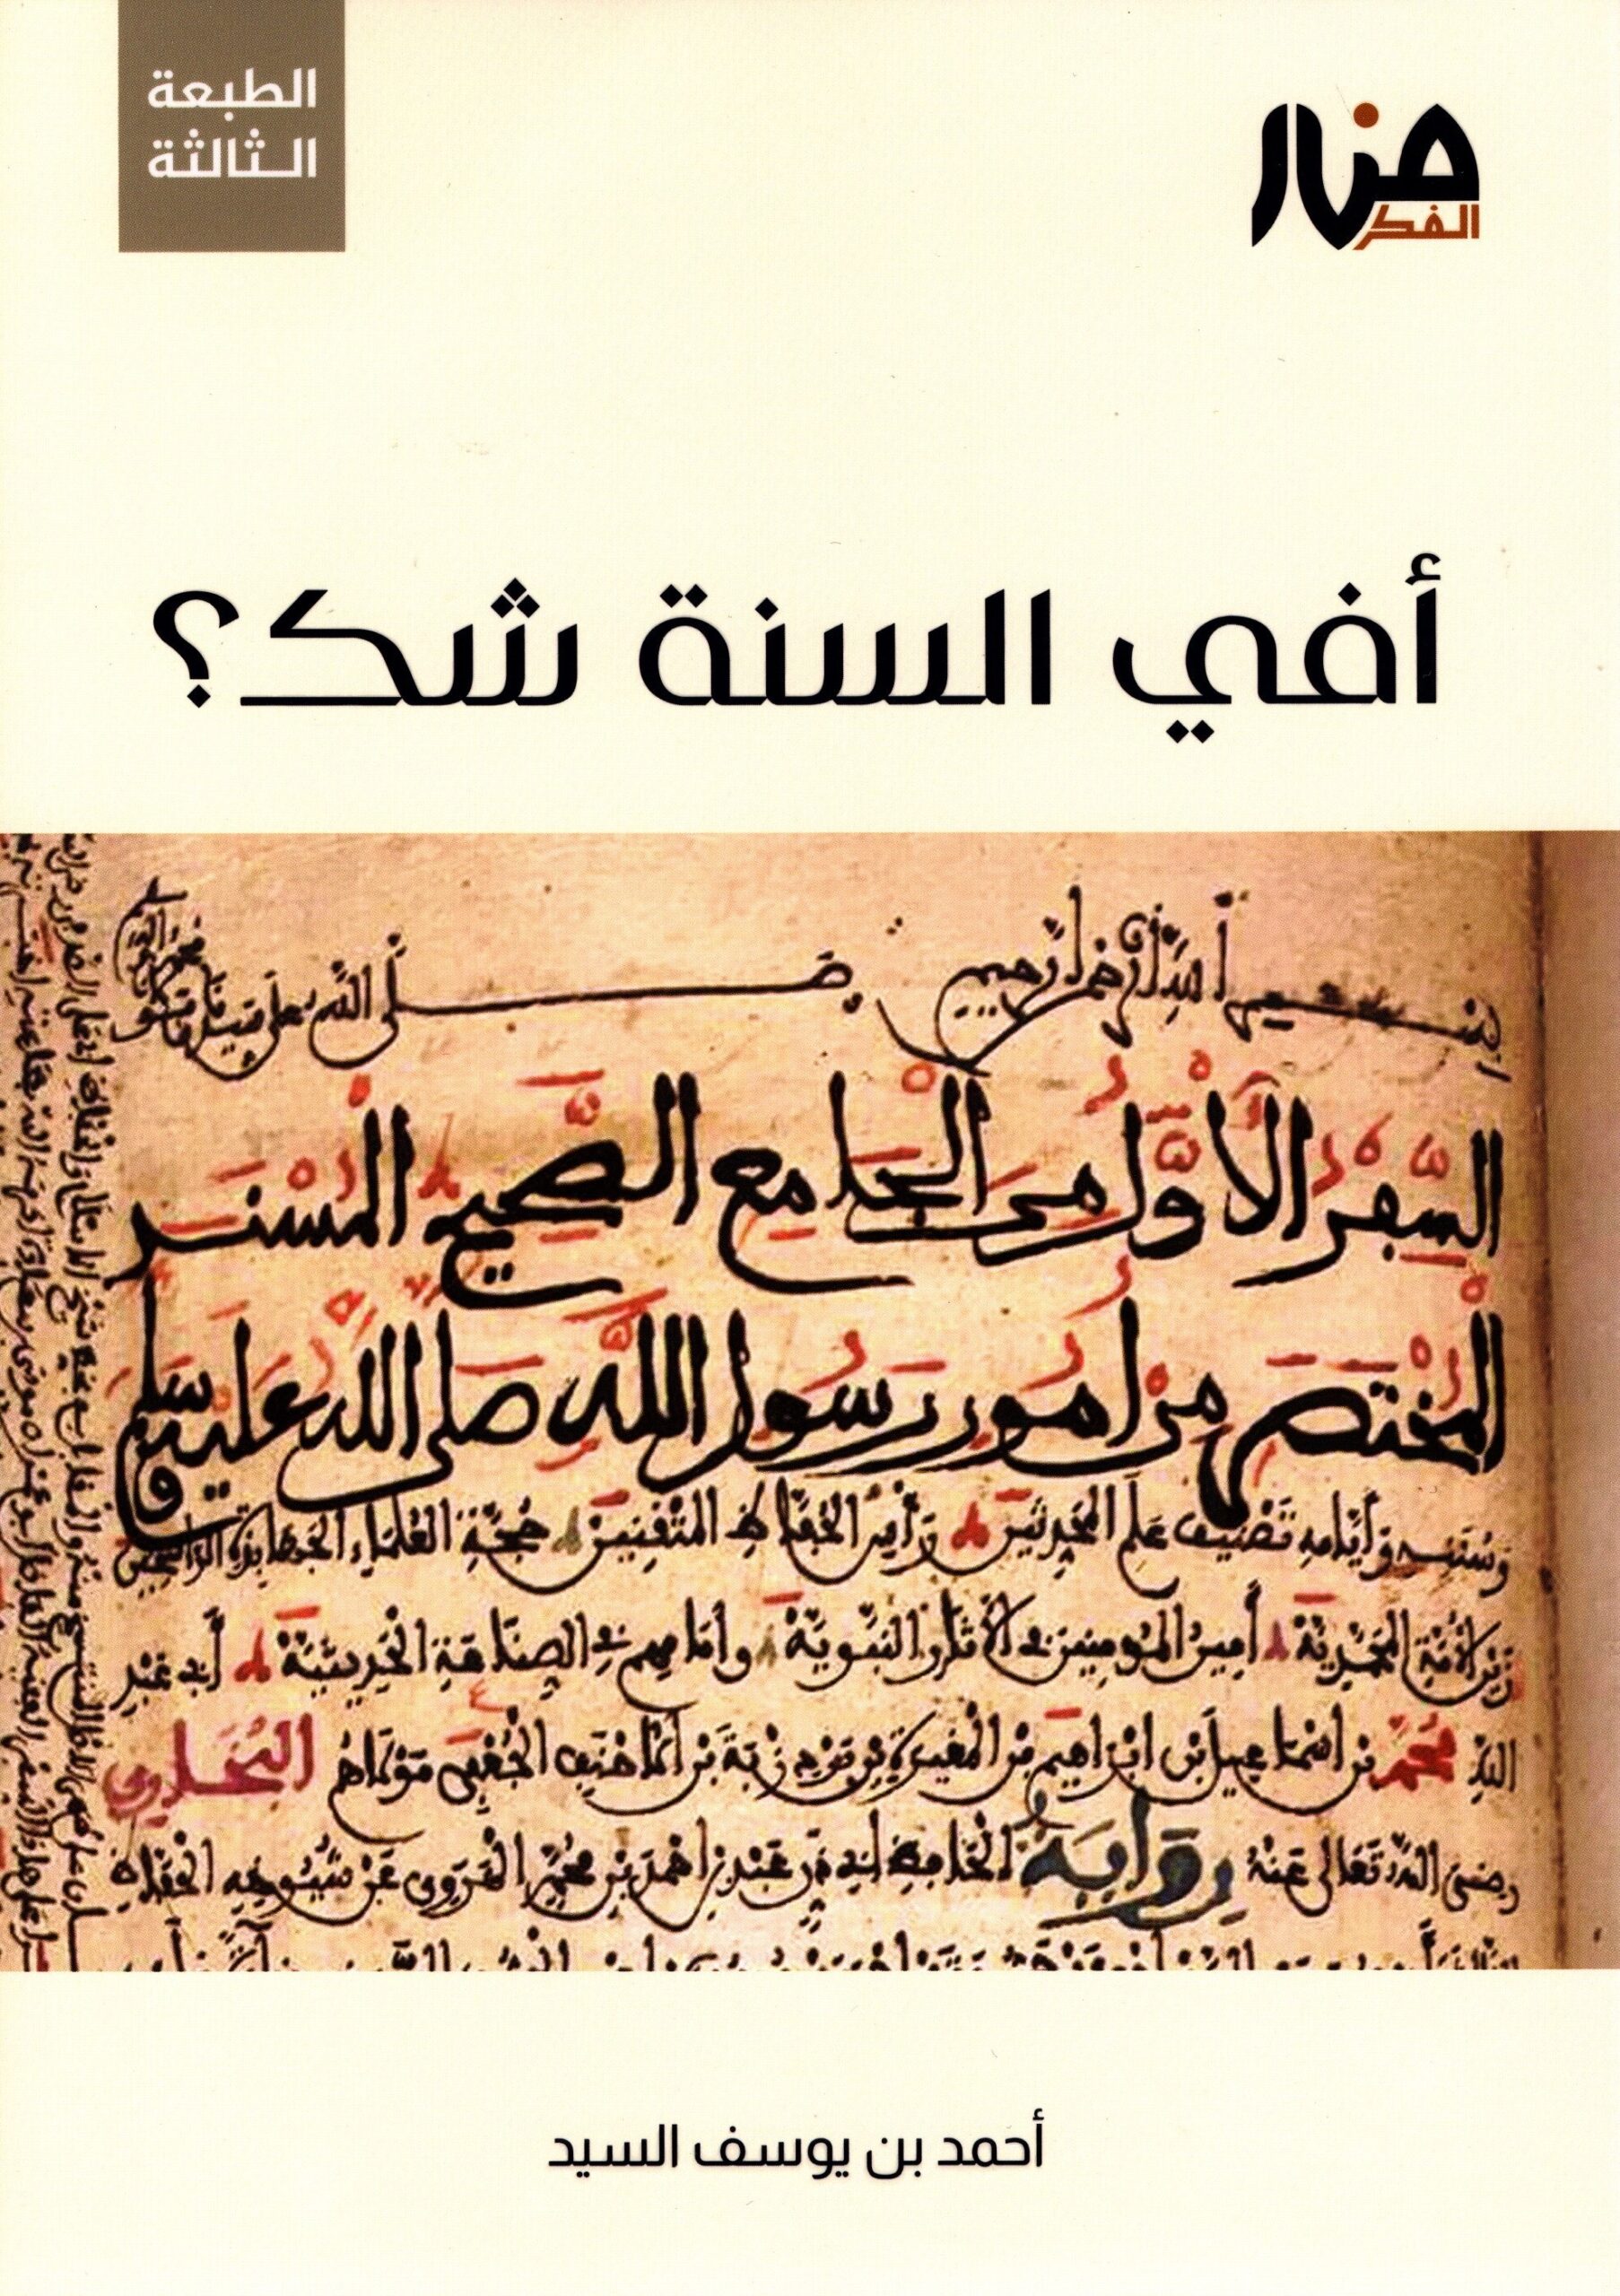 منار
الفكر
الطبعة
الثالثة
أفي السنة شك؟
بسم الله الرحمن الرحيم وصلى الله على سيدنا
السفر الأول من الجامع الصحيح المسند
المختصر من أمور رسول الله صلى الله عليه وسلم
وسننه وأيامه تصنيف علم المحدثين ورأس الحفاظ المتقنين حجة العلماء الجهابذة الراسخين
زين الأمة المحمدية أمير المومنين في الآثار النبوية وامامهم في الصناعة الحديثية أبي عبد
الله محمد بن اسماعيل بن ابراهيم بن المغيرة بن بن الجعفي مولاهم البخاري
رضي الله تعالى عنه رواية الحافظ أبي ذر عبد بن احمد بن محمد الهروي عن شيوخه
أحمد بن يوسف السيد